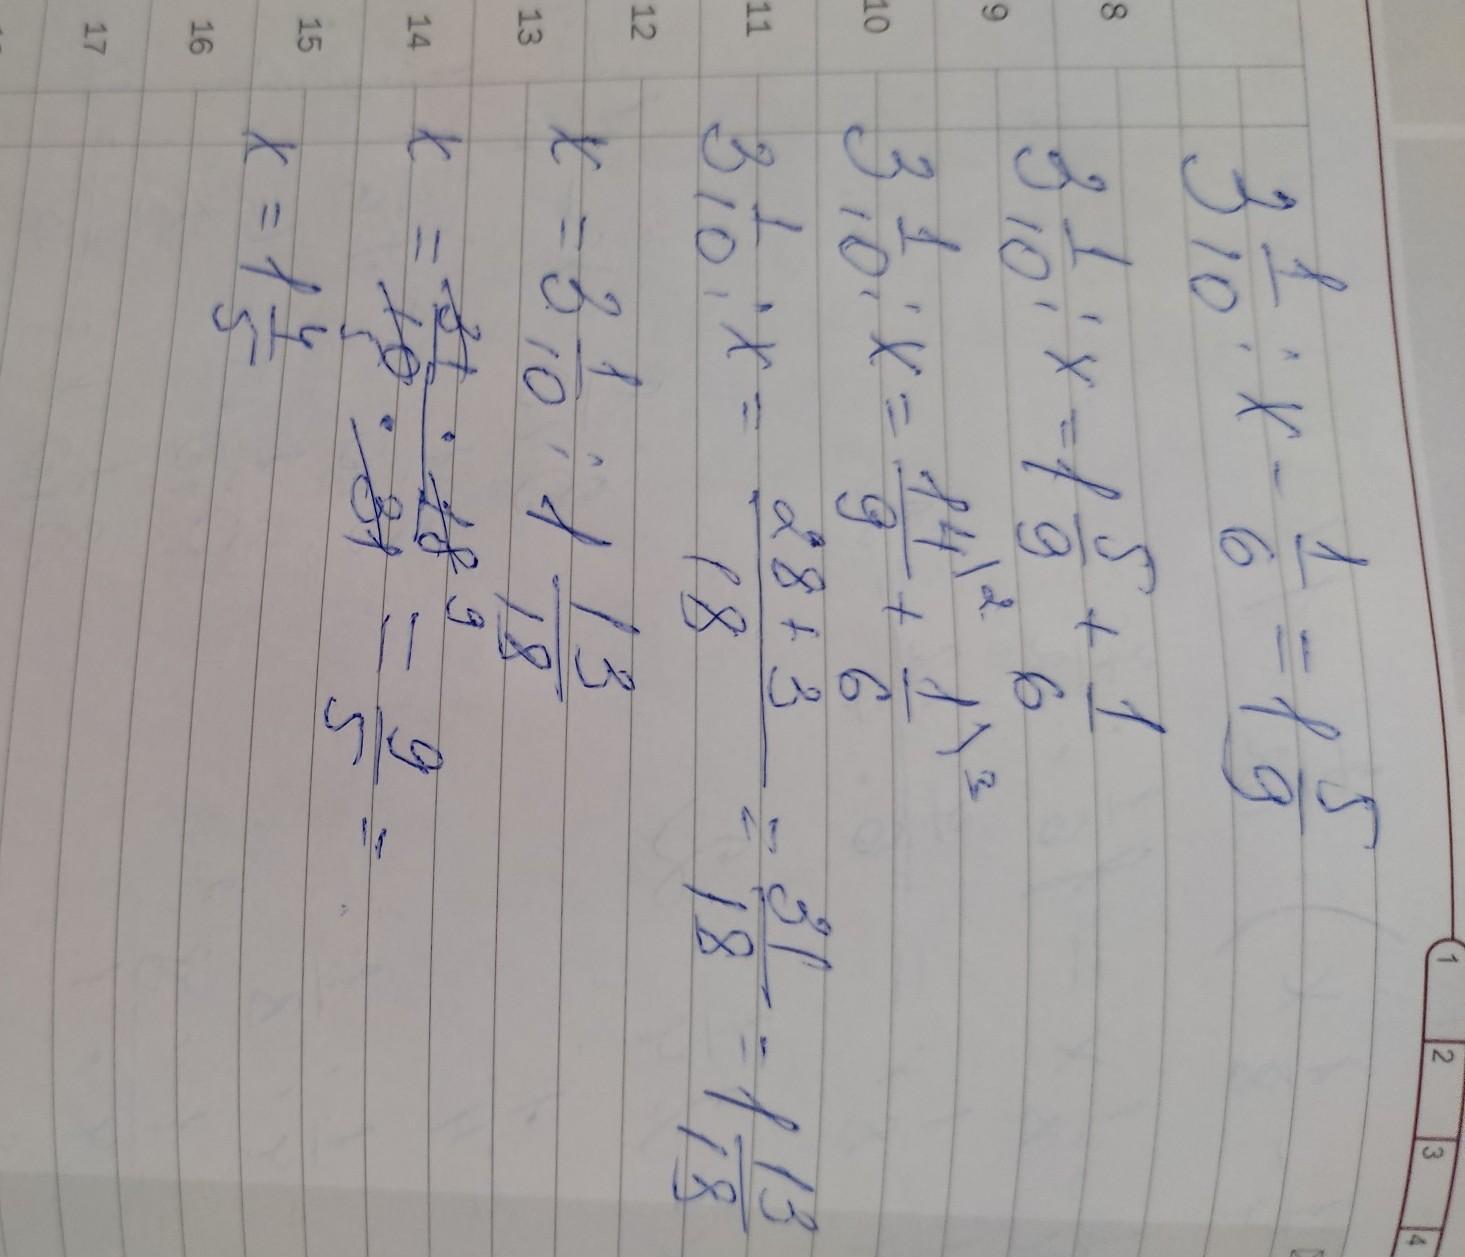 8
9
10
11
12
13
14
15
16
17
1
2
3
4
3 1/10 : x - 1/6 = 1 5/9
3 1/10 : x = 1 5/9 + 1/6
3 1/10 : x = 14\2/9 + 1\3/6
3 1/10 : x = 28+3/18 = 31/18 = 1 13/18
x = 3 1/10 : 1 13/18
x = 31/10 5 · 18 9/31 = 9/5 =
x = 1 4/5